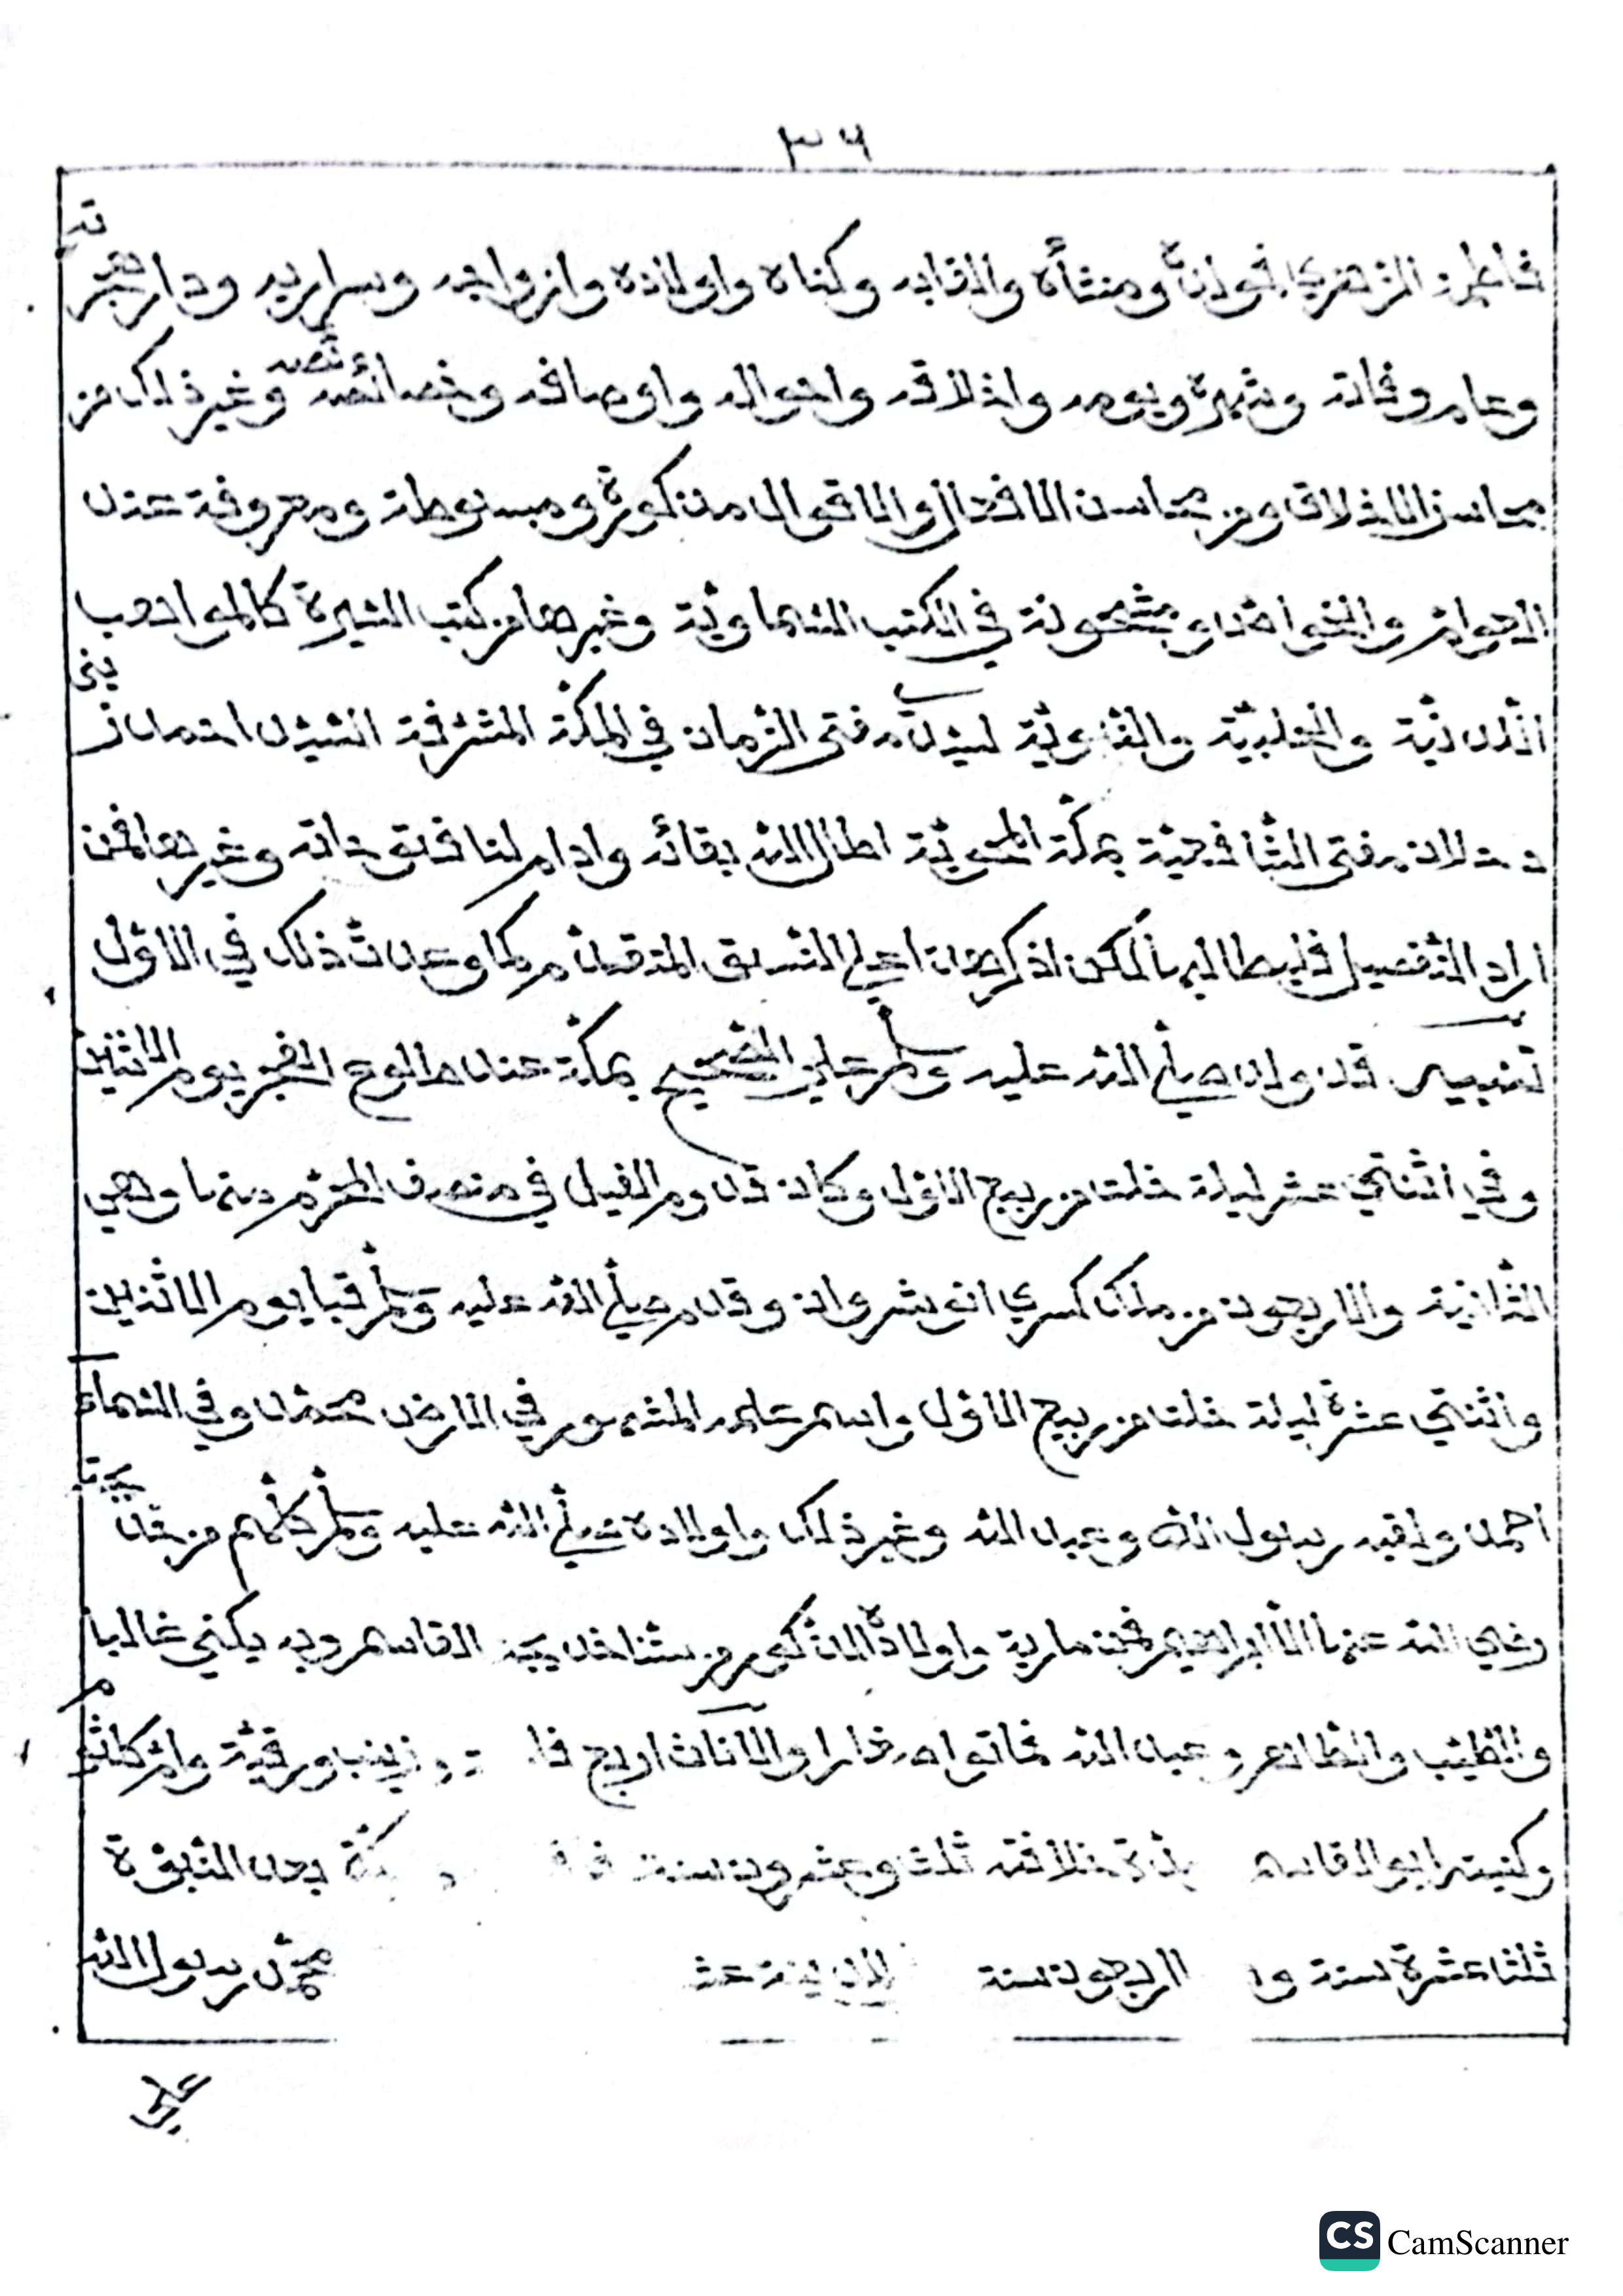 ٣٦
فاطمة الزهرى فمولده ومنشأه والقابه وكناه واولاده وازواجه وسراريه ودار هجرته
وعام وفاته وشهره ويومه واخلاقه واحواله واوصافه وخصائصه وغير ذلك من
محاسن الاخلاق ومن محاسن الافعال والاقوال مذكورة ومبسوطة ومعروفة عند
العوام والخواص ومشحونة في الكتب السماوية وغيرها من كتب السيرة كالمواهب
اللدنية والحلبية والنبوية لسيدنا مفتى الزمان في المكة المشرفة السيد احمد زينى
دحلان مفتى الشافعية بمكة المحمية اطال الله بقائه وادام لنا فتوحاته وغيرها فمن
اراد التفصيل فليطالبها لكن اذكر هنا على السبق المتقدم كما وعدت ذلك في الاول
تنبيه قد ولد صلى الله عليه وسلم على الصحيح بمكة عند طلوع الفجر يوم الاثنين
وفي اثنتي عشر ليلة خلت من ربيع الاول وكان قدوم الفيل في منصف المحرم منها وهي
الثانية والاربعون من ملك كسرى انوشروان وقدم صلى الله عليه وسلم قبا يوم الاثنين
واثنتي عشرة ليلة خلت من ربيع الاول واسم علمه المشهور في الارض محمد وفي السماء
احمد ولقبه رسول الله وعبد الله وغير ذلك واولاده صلى الله عليه وسلم كلهم من خديجة
رضي الله عنها الا ابراهيم فمن مارية واولاده الذكور من سيدتنا خديجة القاسم وبه يكنى غالبا
والطيب والطاهر وعبد الله فماتوا صغارا والاناث اربع زينب ورقية وام كلثوم
وكنيته ابو القاسم مدة خلافته ثلث وعشرون سنة بعد النبوة
ثلثا عشرة سنة اربعون سنة محمد رسول الله